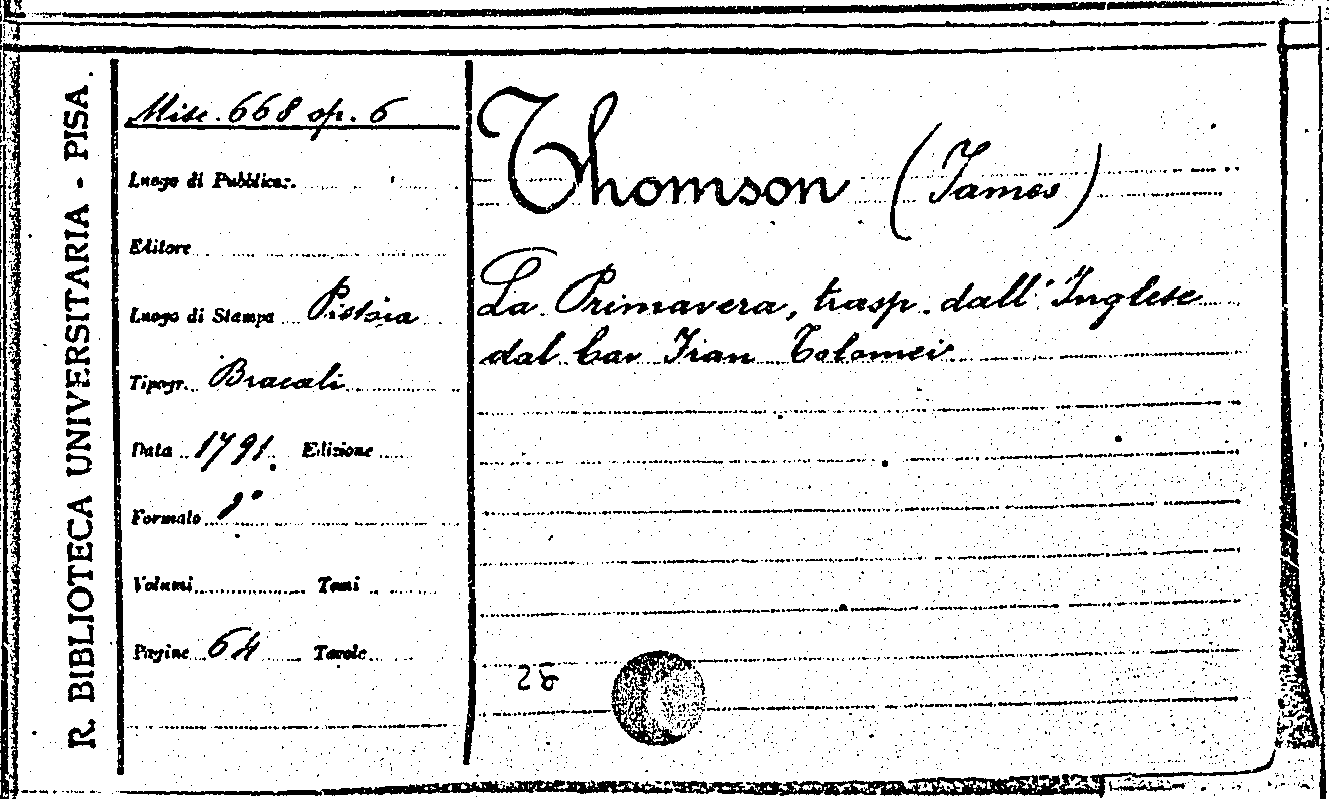 R. BIBLIOTECA UNIVERSITARIA - PISA.
Misc. 668 op. 6
Luogo di Pubblicaz.
Editore
Luogo di Stampa Pistoia
Tipogr. Bracali
Data 1791. Edizione
Formato 8°
Volumi Tomi
Pagine 64 Tavole
Thomson (James)
La Primavera, trasp. dall' Inglese
dal Cav Gian Tolomei